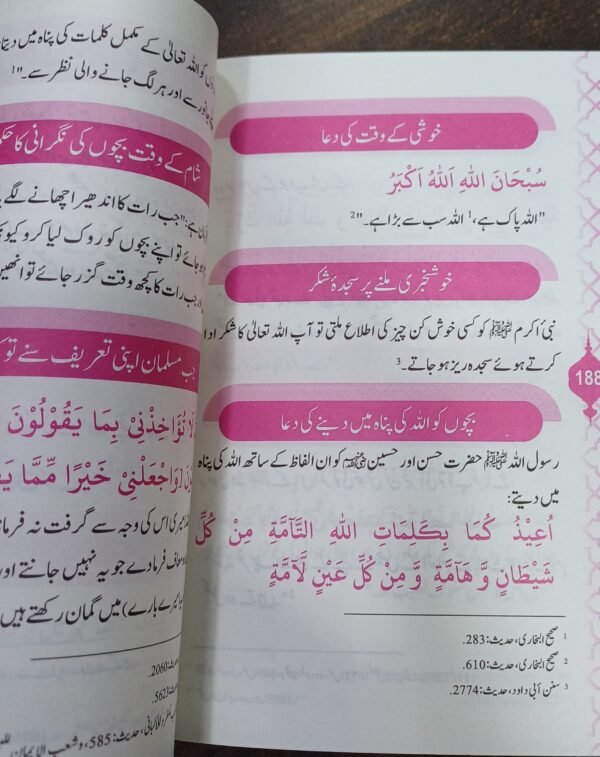 خوشی کے وقت کی دعا
سُبْحَانَ اللهِ اَللهُ اَكْبَرُ
"اللہ پاک ہے،¹ اللہ سب سے بڑا ہے۔"²
خوشخبری ملنے پر سجدۂ شکر
نبی اکرم ﷺ کو کسی خوش کن چیز کی اطلاع ملتی تو آپ اللہ تعالیٰ کا شکر ادا
کرتے ہوئے سجدہ ریز ہو جاتے۔³
188
بچوں کو اللہ کی پناہ میں دینے کی دعا
رسول اللہ ﷺ حضرت حسن اور حسین رضی اللہ عنہما کو ان الفاظ کے ساتھ اللہ کی پناہ
میں دیتے:
اُعِيْذُ كُمَا بِكَلِمَاتِ اللهِ التَّآمَّةِ مِنْ كُلِّ
شَيْطَانٍ وَّ هَآمَّةٍ وَّ مِنْ كُلِّ عَيْنٍ لَّآمَّةٍ
¹ صحیح البخاری، حدیث: 283.
² صحیح البخاری، حدیث: 610.
³ سنن أبی داود، حدیث: 2774.
کو اللہ تعالیٰ کے مکمل کلمات کی پناہ میں دیتا
جانور سے اور ہر لگ جانے والی نظر سے۔"¹
شام کے وقت بچوں کی نگرانی کا حکم
ہے: "جب رات کا اندھیرا چھانے لگے
ہو جائے تو اپنے بچوں کو روک لیا کرو کیو
جب رات کا کچھ وقت گزر جائے تو انھیں
مسلمان اپنی تعریف سنے تو
لَا تُؤَاخِذْنِيْ بِمَا يَقُوْلُوْنَ
وَاجْعَلْنِيْ خَيْرًا مِّمَّا
میری اس کی وجہ سے گرفت نہ فرما
معاف فرما دے جو یہ نہیں جانتے اور
میرے بارے) میں گمان رکھتے ہیں
حدیث: 2060.
حدیث: 5623.
حدیث: 585، وشعب الإیمان